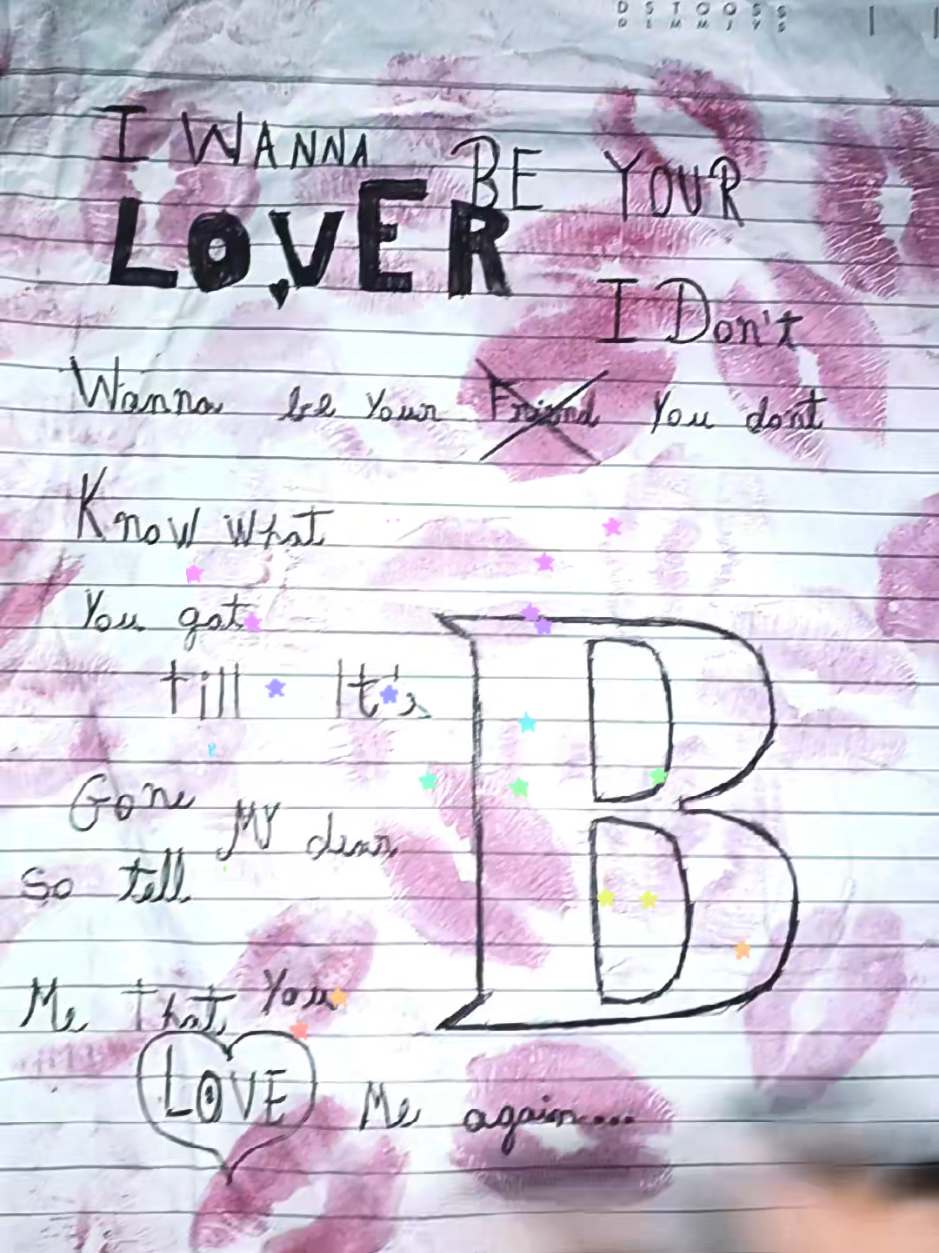 D S T Q Q S S
I WANNA BE YOUR
LOVER
I Don't
Wanna be Your Friend You dont
Know what
You got
till It's
Gone My dear
So tell
Me that You
LOVE Me again....
B